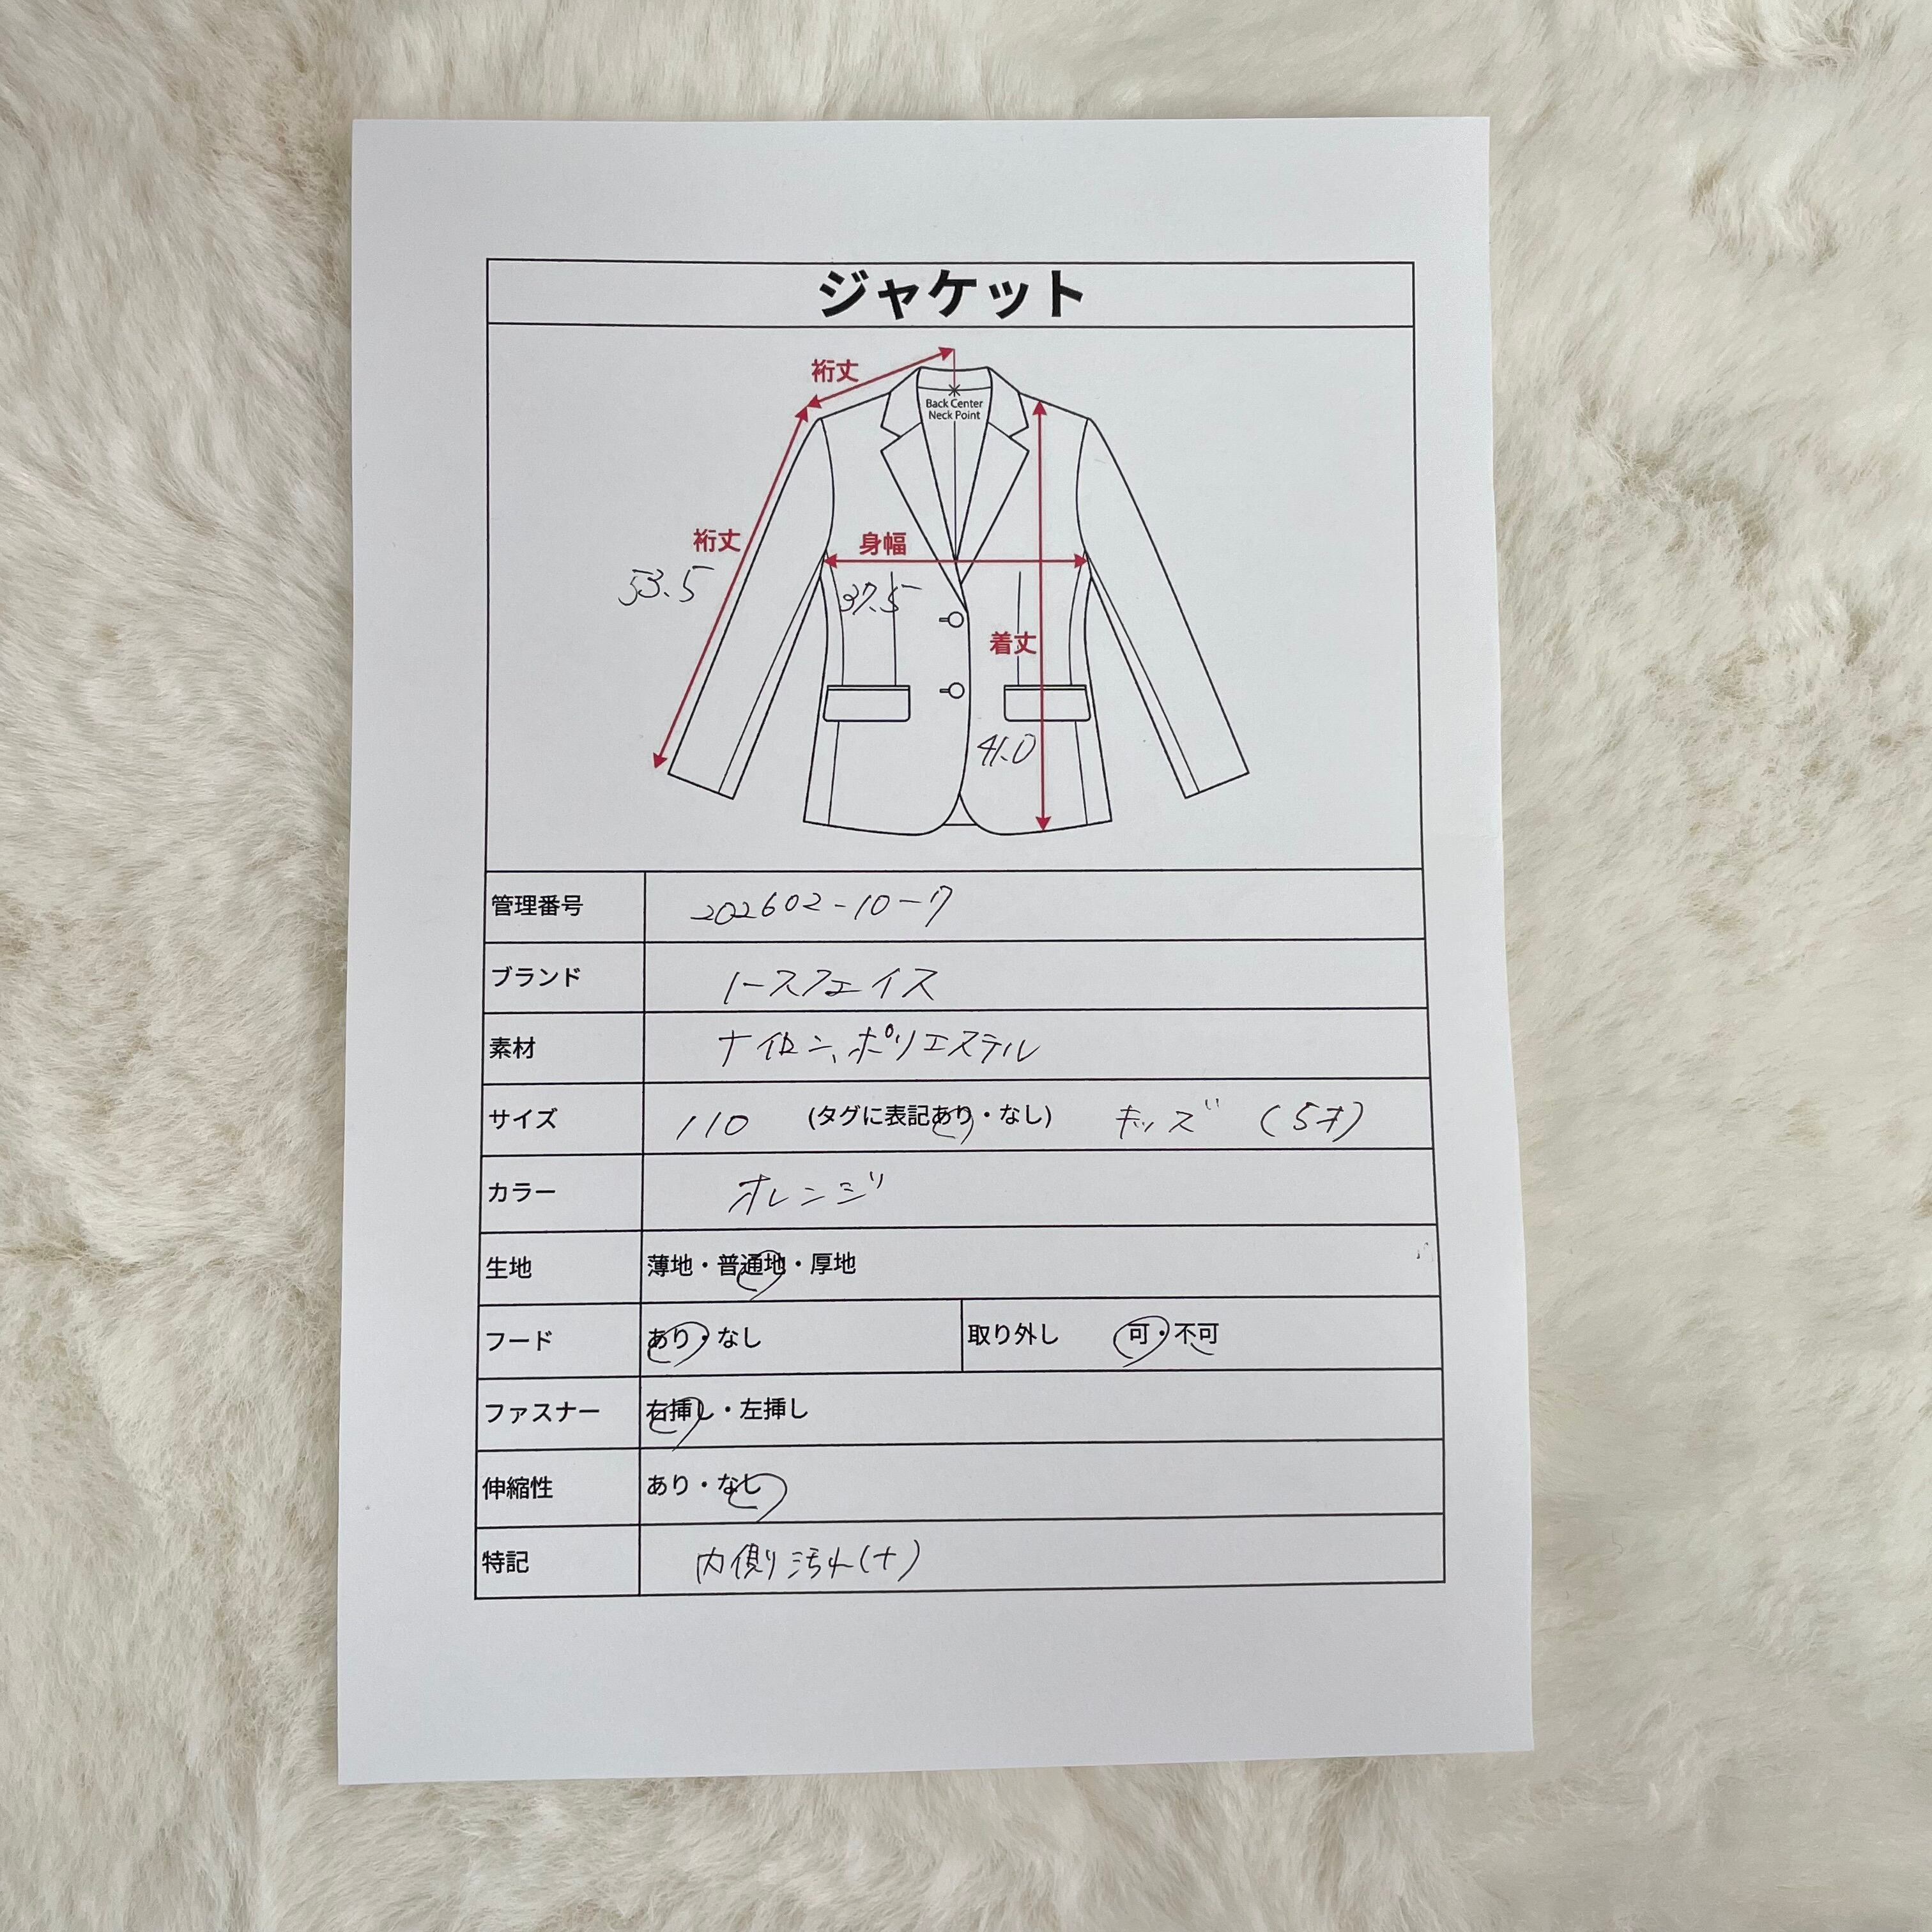 ジャケット
裄丈
Back Center
Neck Point
裄丈
53.5
身幅
37.5
着丈
41.0
管理番号 202602-10-7
ブランド ノースフェイス
素材 ナイロン、ポリエステル
サイズ 110 (タグに表記あり・なし) キッズ (5才)
カラー オレンジ
生地 薄地・普通地・厚地
フード あり・なし 取り外し 可・不可
ファスナー 右挿し・左挿し
伸縮性 あり・なし
特記 内側汚れ(+)